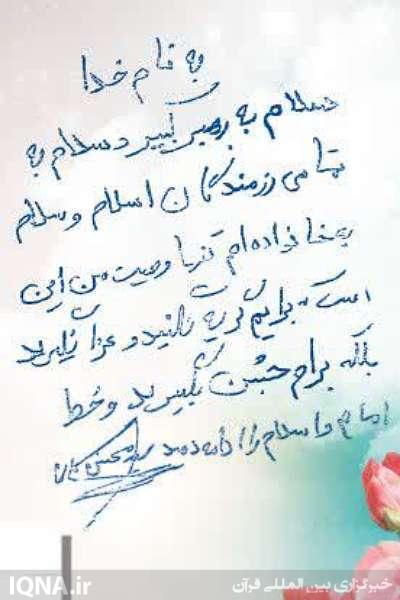 به نام خدا
سلام به رهبر کبیر و سلام به
تمامی رزمندگان اسلام و سلام
بخانواده‌ام تنها وصیت من این
است که برایم گریه نکنید و عزا نگیرید
بلکه برام جشن بگیرید و خط
امام و اسلام را ادامه دهید
IQNA.ir خبرگزاری بین المللی قرآن